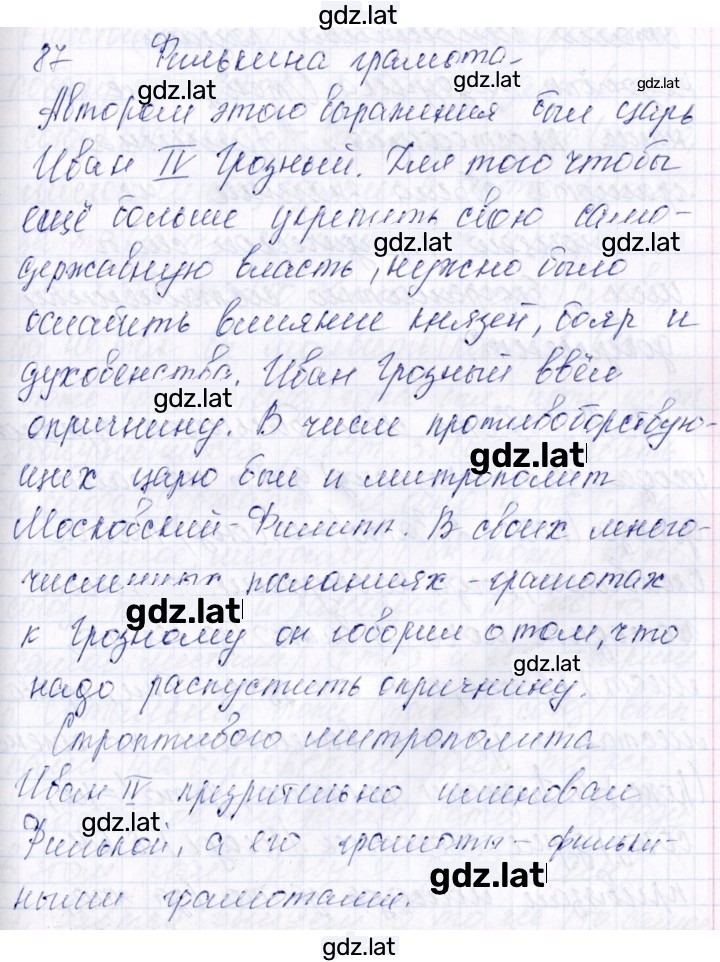 gdz.lat
87 Филькина грамота.
gdz.lat
gdz.lat
gdz.lat
Автором этого выражения был царь
Иван IV Грозный. Для того чтобы
ещё больше укрепить свою само-
gdz.lat
gdz.lat
державную власть, нужно было
ослабить влияние князей, бояр и
духовенства. Иван Грозный ввёл
gdz.lat
опричнину. В числе противоборствую-
gdz.lat
щих царю был и митрополит
Московский - Филипп. В своих много-
численных посланиях - грамотах
gdz.lat
к Грозному он говорил о том, что
gdz.lat
надо распустить опричнину.
Строптивого митрополита
Иван IV презрительно именовал
gdz.lat
Филькой, а его грамоты - фильки-
gdz.lat
ными грамотами.
gdz.lat